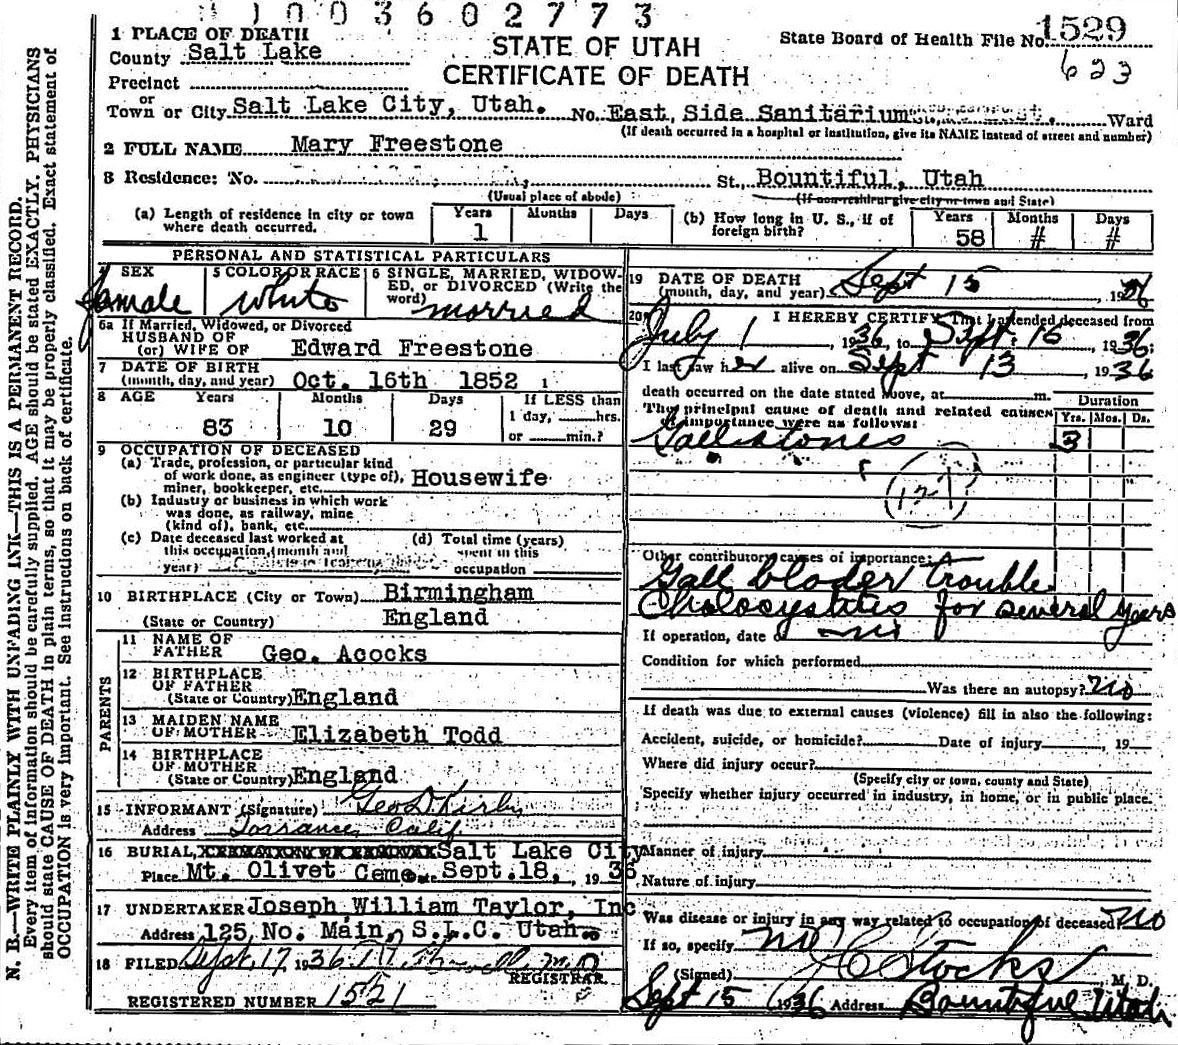 1003602773
1 PLACE OF DEATH
County Salt Lake
STATE OF UTAH
CERTIFICATE OF DEATH
State Board of Health File No. 1529
623
Precinct
or
Town or City Salt Lake City, Utah. No. East Side Sanitarium Ward
(If death occurred in a hospital or institution, give its NAME instead of street and number)
2 FULL NAME Mary Freestone
3 Residence: No. St., Bountiful, Utah
(Usual place of abode) (If non-resident give city or town and State)
(a) Length of residence in city or town where death occurred. Years 1 Months Days
(b) How long in U. S., if of foreign birth? Years 58 Months # Days #
PERSONAL AND STATISTICAL PARTICULARS
4 SEX Famale
5 COLOR OR RACE White
6 SINGLE, MARRIED, WIDOWED, or DIVORCED (Write the word) morried
6a If Married, Widowed, or Divorced
HUSBAND OF
(or) WIFE OF Edward Freestone
7 DATE OF BIRTH
(month, day, and year) Oct. 16th 1852
8 AGE Years Months Days If LESS than
83 10 29 1 day, hrs.
or min.?
9 OCCUPATION OF DECEASED
(a) Trade, profession, or particular kind
of work done, as engineer (type of), Housewife
miner, bookkeeper, etc.
(b) Industry or business in which work
was done, as railway, mine
(kind of), bank, etc.
(c) Date deceased last worked at (d) Total time (years)
this occupation (month and spent in this
year) occupation
10 BIRTHPLACE (City or Town) Birmingham
(State or Country) England
PARENTS
11 NAME OF
FATHER Geo. Acocks
12 BIRTHPLACE
OF FATHER
(State or Country) England
13 MAIDEN NAME
OF MOTHER Elizabeth Todd
14 BIRTHPLACE
OF MOTHER
(State or Country) England
15 INFORMANT (Signature) Geo D Kirby
Address Torrance, Calif
16 BURIAL, Salt Lake City
Place Mt. Olivet Ceme. Sept. 18, 1936
17 UNDERTAKER Joseph William Taylor, Inc
Address 125 No. Main, S.L.C. Utah.
18 FILED Sept. 17 1936 M.D
REGISTRAR
REGISTERED NUMBER 1521
19 DATE OF DEATH
(month, day, and year) Sept 15, 1936
20 I HEREBY CERTIFY, That I attended deceased from
July 1, 1936, to Sept. 15 1936;
I last saw her alive on Sept 13, 1936
death occurred on the date stated above, at m.
The principal cause of death and related causes Duration
of importance were as follows: Yrs. Mos. Ds.
Gallstones 3
127
Other contributory causes of importance:
Gall bloder trouble
Cholocystites for several years
If operation, date of no
Condition for which performed
Was there an autopsy? no
If death was due to external causes (violence) fill in also the following:
Accident, suicide, or homicide? Date of injury , 19
Where did injury occur?
(Specify city or town, county and State)
Specify whether injury occurred in industry, in home, or in public place.
Manner of injury
Nature of injury
Was disease or injury in any way related to occupation of deceased? no
If so, specify no
(Signed) Stocks M. D.
Sept 15 1936 Address Bountiful, Utah
N. B.—WRITE PLAINLY WITH UNFADING INK—THIS IS A PERMANENT RECORD.
Every item of information should be carefully supplied. AGE should be stated EXACTLY. PHYSICIANS
should state CAUSE OF DEATH in plain terms, so that it may be properly classified. Exact statement of
OCCUPATION is very important. See instructions on back of certificate.